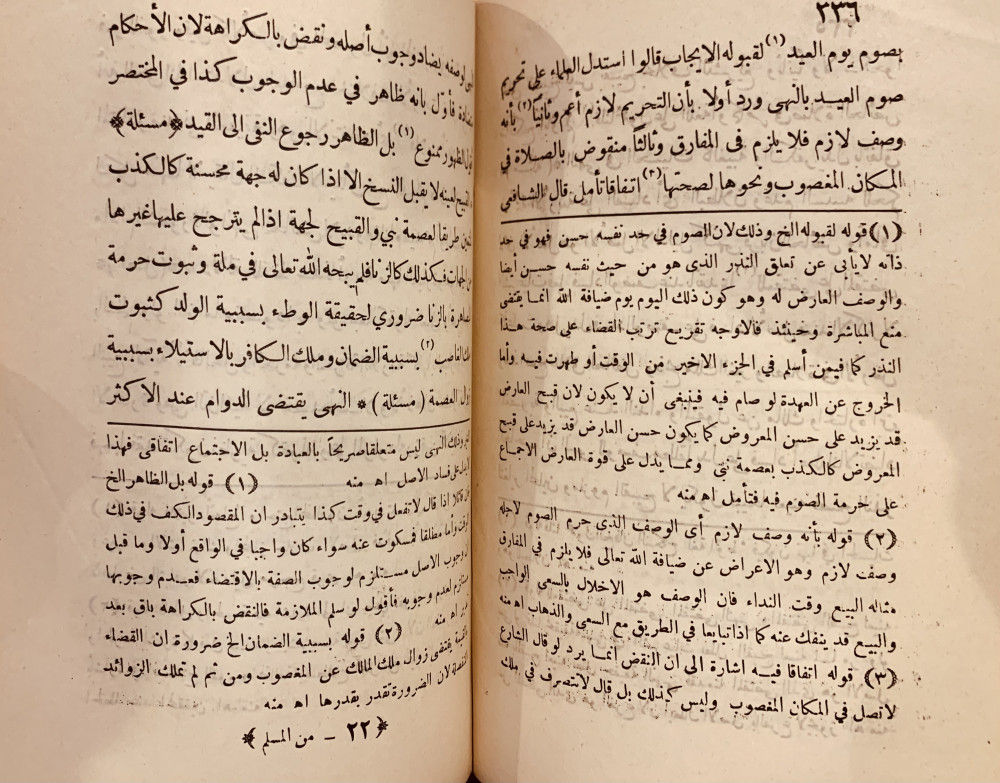 ٢٣٦
بصوم يوم العيد (١) لقبوله الايجاب قالوا استدل العلماء على تحريم
صوم العيد بالنهى ورد أولا بأن التحريم لازم أعم وثانياً (٢) بأنه
وصف لازم فلا يلزم فى المفارق وثالثاً منقوض بالصلاة في
المكان المغصوب ونحوها لصحتها (٣) اتفاقا تأمل قال الشافعى
(١) قوله لقبوله الخ وذلك لان الصوم في حد نفسه حسن فهو في حد
ذاته لا يأبى عن تعلق النذر الذى هو من حيث نفسه حسن أيضا
والوصف العارض له وهو كون ذلك اليوم يوم ضيافة الله انما يقتضى
منع المباشرة وحينئذ فالاوجه تفريع ترتب القضاء على صحة هذا
النذر كما فيمن أسلم في الجزء الاخير من الوقت أو طهرت فيه وأما
الخروج عن العهدة لو صام فيه فينبغى أن لا يكون لان قبح العارض
قد يزيد على حسن المعروض كما يكون حسن العارض قد يزيد على قبح
المعروض كالكذب بعصمة نبى ومما يدل على قوة العارض الاجماع
على حرمة الصوم فيه فتأمل اه منه
(٢) قوله بأنه وصف لازم أى الوصف الذى حرم الصوم لاجله
وصف لازم وهو الاعراض عن ضيافة الله تعالى فلا يلزم في المفارق
مثاله البيع وقت النداء فان الوصف هو الاخلال بالسعى الواجب
والبيع قد ينفك عنه كما اذا تبايعا في الطريق مع السعى والذهاب اه منه
(٣) قوله اتفاقا فيه اشارة الى ان النقض انما يرد لو قال الشارع
لا تصل في المكان المغصوب وليس كذلك بل قال لا تتصرف في ملك
لوصفه يضاد وجوب أصله ونقض بالكراهة لان الأحكام
فأول بانه ظاهر في عدم الوجوب كذا في المختصر
الظهور ممنوع (١) بل الظاهر رجوع النفى الى القيد ﴿مسئلة﴾
القبيح لعينه لا يقبل النسخ الا اذا كان له جهة محسنة كالكذب
طريقا لعصمة نبي والقبيح لجهة اذا لم يترجح عليها غيرها
فكذلك كالزنا فلم يبحه الله تعالى في ملة وثبوت حرمة
بالزنا ضروري لحقيقة الوطء بسببية الولد كثبوت
ملك الغاصب (٢) بسببية الضمان وملك الكافر بالاستيلاء بسببية
العصمة (مسئلة) * النهى يقتضى الدوام عند الاكثر
وذلك النهى ليس متعلقا صريحاً بالعبادة بل الاجتماع اتفاقى فهذا
على فساد الاصل اه منه (١) قوله بل الظاهر الخ
اذا قال لا تفعل في وقت كذا يتبادر ان المقصود الكف في ذلك
وأما مطلقا فمسكوت عنه سواء كان واجبا في الواقع أولا وما قبل
وجوب الاصل مستلزم لوجوب الصفة بالاقتضاء فعدم وجوبها
لعدم وجوبه فأقول لو سلم الملازمة فالنقض بالكراهة باق بعد
اه منه (٢) قوله بسببية الضمان الخ ضرورة ان القضاء
يقتضى زوال ملك المالك عن المغصوب ومن ثم لم تملك الزوائد
لان الضرورة تقدر بقدرها اه منه
﴿ ٢٢ – من المسلم ﴾